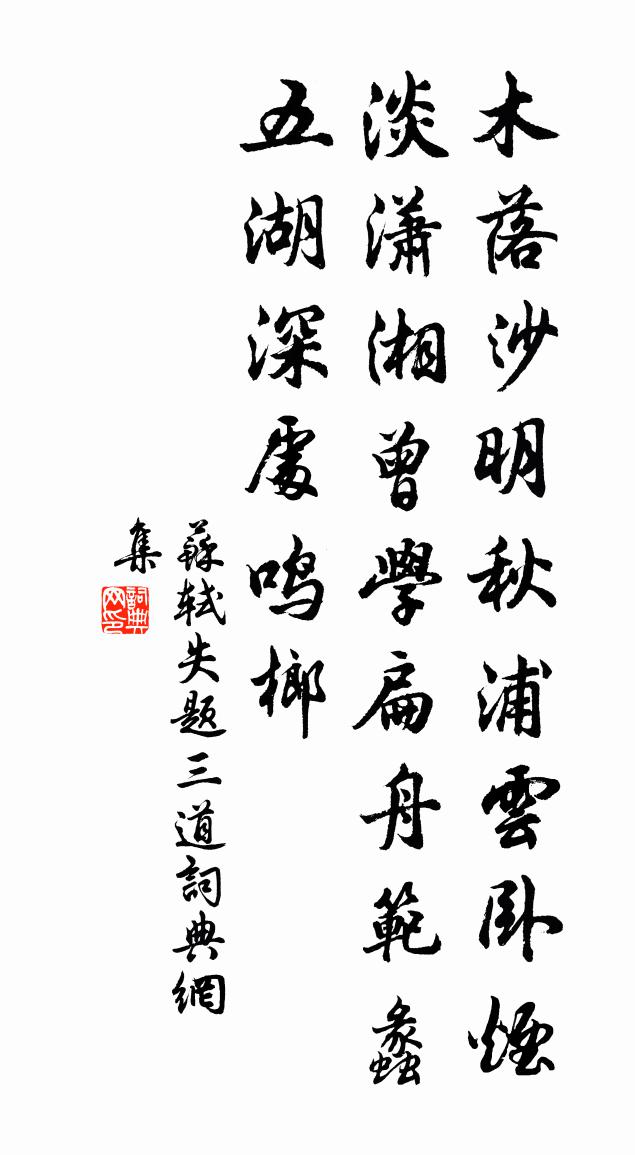 木落沙明秋浦雲卧煙
淡瀟湘曾學扁舟範蠡
五湖深處鸣榔
蘇軾失題三道詞典網
集
詞典网印